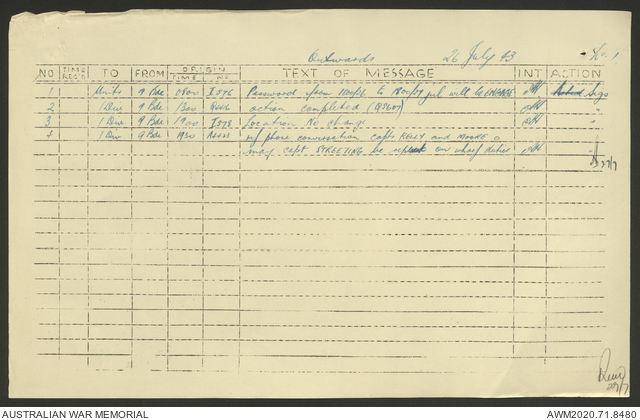 Outwards 26 July 43 No. 1
NO TIME REC'D TO FROM ORIGIN TIME NO. TEXT OF MESSAGE INT ACTION
1 Units 9 Bde 0800 I576 Password from 1800/26 to 1800/27 jul will be Sigs
2 1 Div 9 Bde 1300 action completed "
3 1 Div 9 Bde 1900 I578 Location No change "
4 1 Div 9 Bde 1930 ref phone conversation capts KELLY and MOORE "
may capt STREETING be on wharf duties
27/7
AUSTRALIAN WAR MEMORIAL AWM2020.71.8480